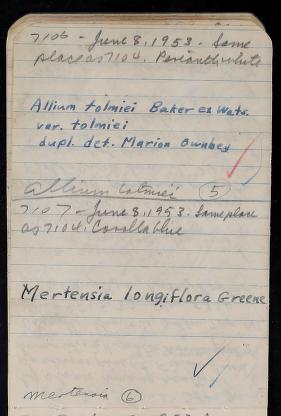 7106 - June 8, 1953. Same
place as 7104. Perianth white
Allium tolmiei Baker ex Wats.
var. tolmiei
dupl. det. Marion Ownbey
Allium tolmiei (5)
7107 - June 8, 1953. Same place
as 7104. Corolla blue
Mertensia longiflora Greene
Mertensia (6)